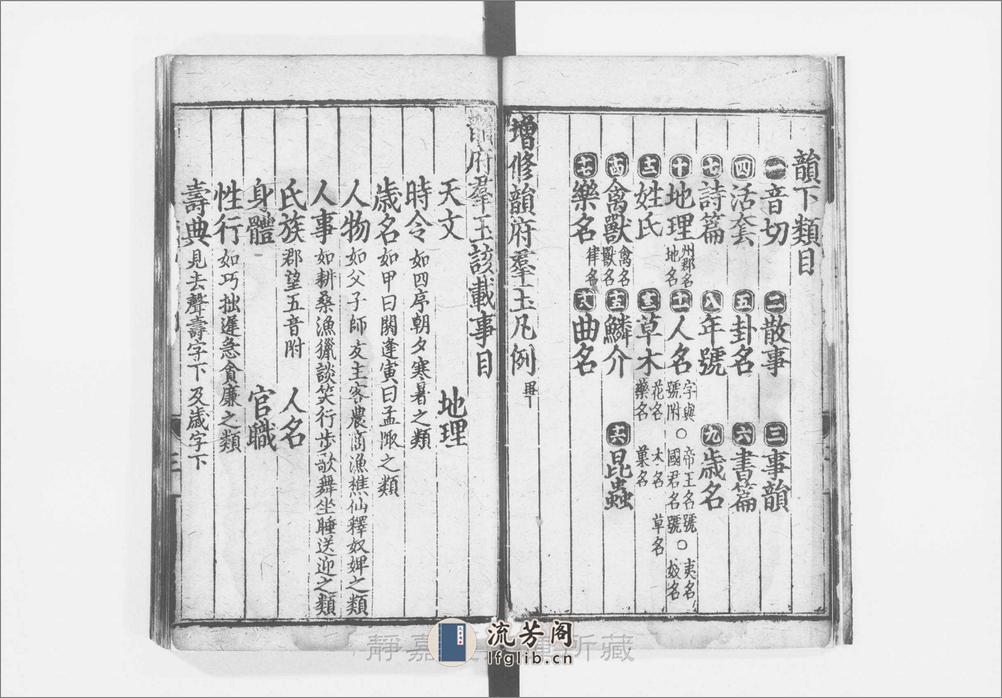 韻下類目
一音切 二散事 三事韻
四活套 五卦名 六書篇
七詩篇 八年號 九歲名
十地理 州郡名 地名 十一人名 字與號附○國君名號○奴名 帝王名號 夷名
十二姓氏 十三草木 花名 木名 草名 藥名 菓名
十四禽獸 禽名 獸名 十五鱗介 十六昆蟲
十七樂名 律名 十八曲名
增修韻府羣玉凡例 畢
韻府羣玉該載事目
天文 地理
時令 如四序朝夕寒暑之類
歲名 如甲曰閼逢寅曰孟陬之類
人物 如父子師友主客農商漁樵仙釋奴婢之類
人事 如耕桑漁獵談笑行步歌舞坐睡送迎之類
氏族 郡望五音附 人名
身體 官職
性行 如巧拙遲急貪廉之類
壽典 見去聲壽字下及歲字下
流芳阁
lfglib.cn
靜嘉 所藏